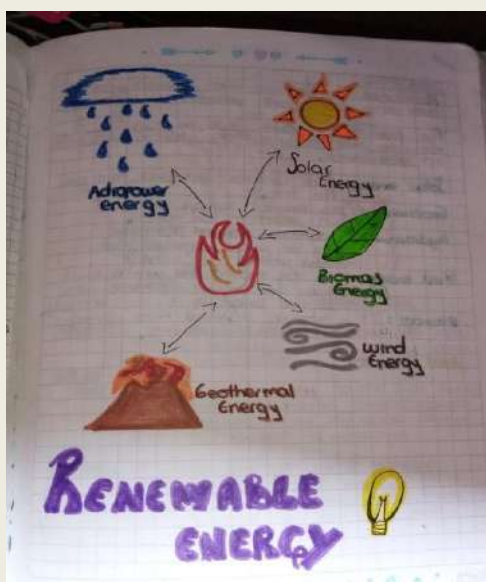 Adropower
energy
Solar
Energy
Biomas
Energy
Wind
Energy
Geothermal
Energy
RENEWABLE
ENERGY